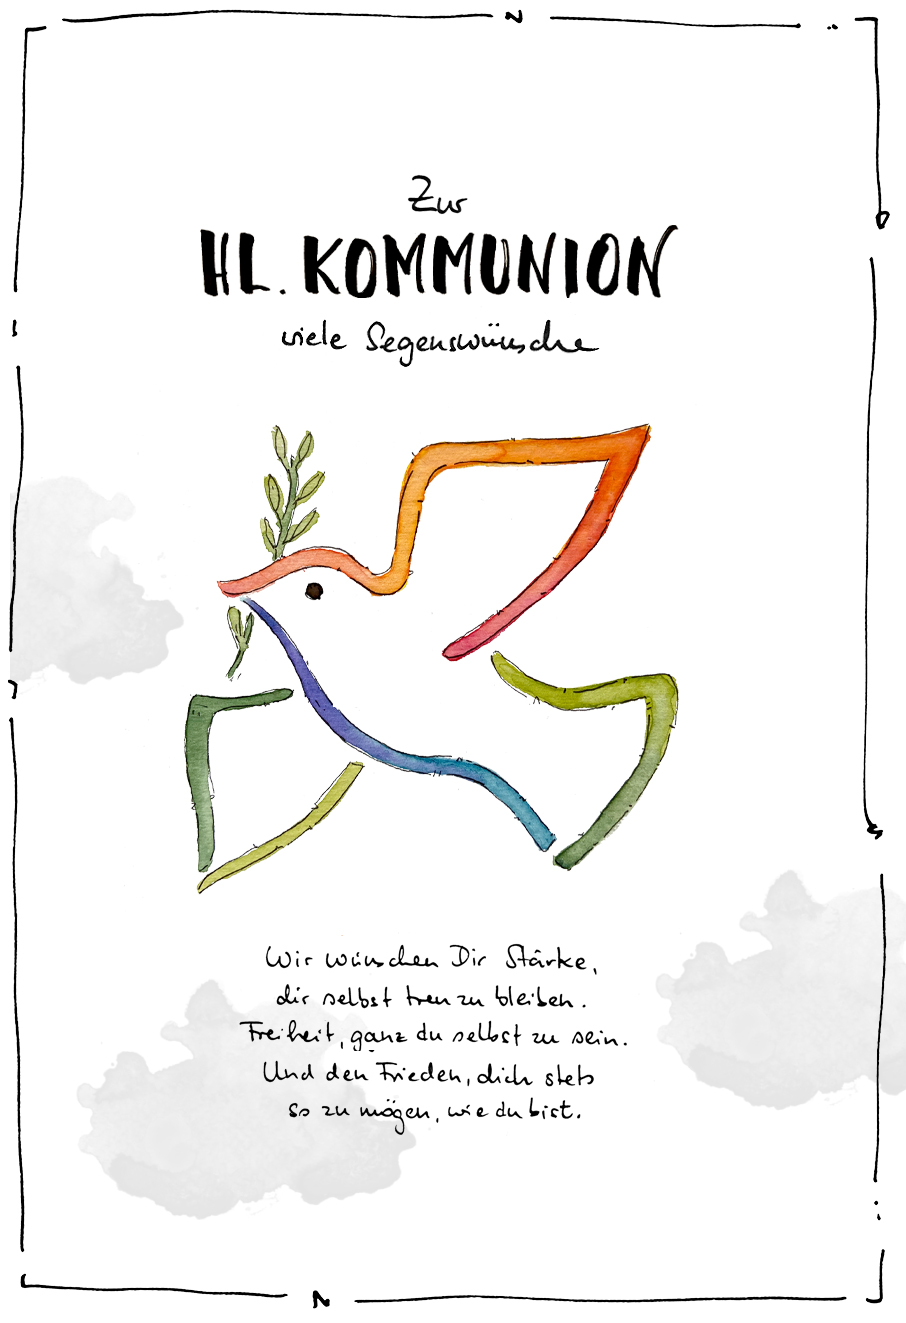 Zur
HL. KOMMUNION
viele Segenswünsche
Wir wünschen Dir Stärke,
dir selbst treu zu bleiben.
Freiheit, ganz du selbst zu sein.
Und den Frieden, dich stets
so zu mögen, wie du bist.